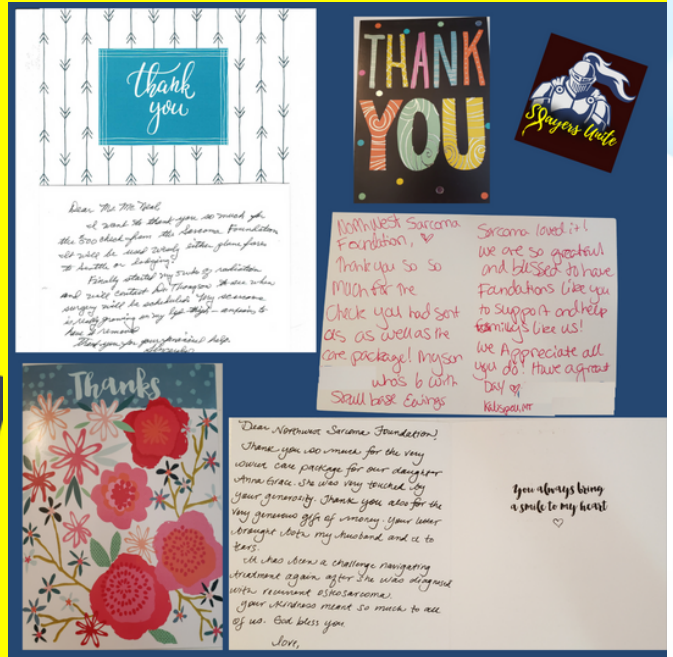 thank
you
Dear Ms. McNeal,
I want to thank you so much for
the 500 check from the Sarcoma Foundation
It will be used wisely either plane fares
to Seattle or lodging.
Finally started my 5 wks of radiation
and will contact Dr Thompson to see when
surgery will be scheduled. My sarcoma
is really growing on my left thigh - anxious to
have it removed
Thank you for your financial help
THANK
YOU
SLayers Unite
Northwest Sarcoma
Foundation, ♡
Thank you so so
much for the
check you had sent
us as well as the
care package! My son
who's 6 with
Skull base Ewings
Sarcoma loved it!
we are so greatful
and blessed to have
Foundations like you
to support and help
familys like us!
We Appreciate all
you do! Have a great
Day ♡
Kalispell, MT
Thanks
Dear Northwest Sarcoma Foundation,
Thank you so much for the very
warm care package for our daughter
Anna Grace. She was very touched by
your generosity. Thank you also for the
very generous gift of money. Your letter
brought both my husband and I to
tears.
It has been a challenge navigating
treatment again after she was diagnosed
with recurrent osteosarcoma.
Your kindness meant so much to all
of us. God bless you
love,
You always bring
a smile to my heart
♡